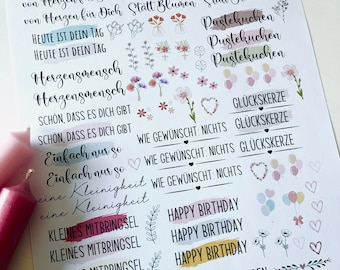 von Herzen für Dich
Statt Blumen
HEUTE IST DEIN TAG
HEUTE IST DEIN TAG
Pustekuchen
Pustekuchen
Pustekuchen
Herzensmensch
Herzensmensch
SCHÖN, DASS ES DICH GIBT
SCHÖN, DASS ES DICH GIBT
GLÜCKSKERZE
GLÜCKSKERZE
GLÜCKSKERZE
Einfach nur so
Einfach nur so
WIE GEWÜNSCHT: NICHTS
WIE GEWÜNSCHT: NICHTS
WIE GEWÜNSCHT: NICHTS
eine Kleinigkeit
eine Kleinigkeit
KLEINES MITBRINGSEL
KLEINES MITBRINGSEL
KLEINES MITBRINGSEL
HAPPY BIRTHDAY
HAPPY BIRTHDAY
HAPPY BIRTHDAY